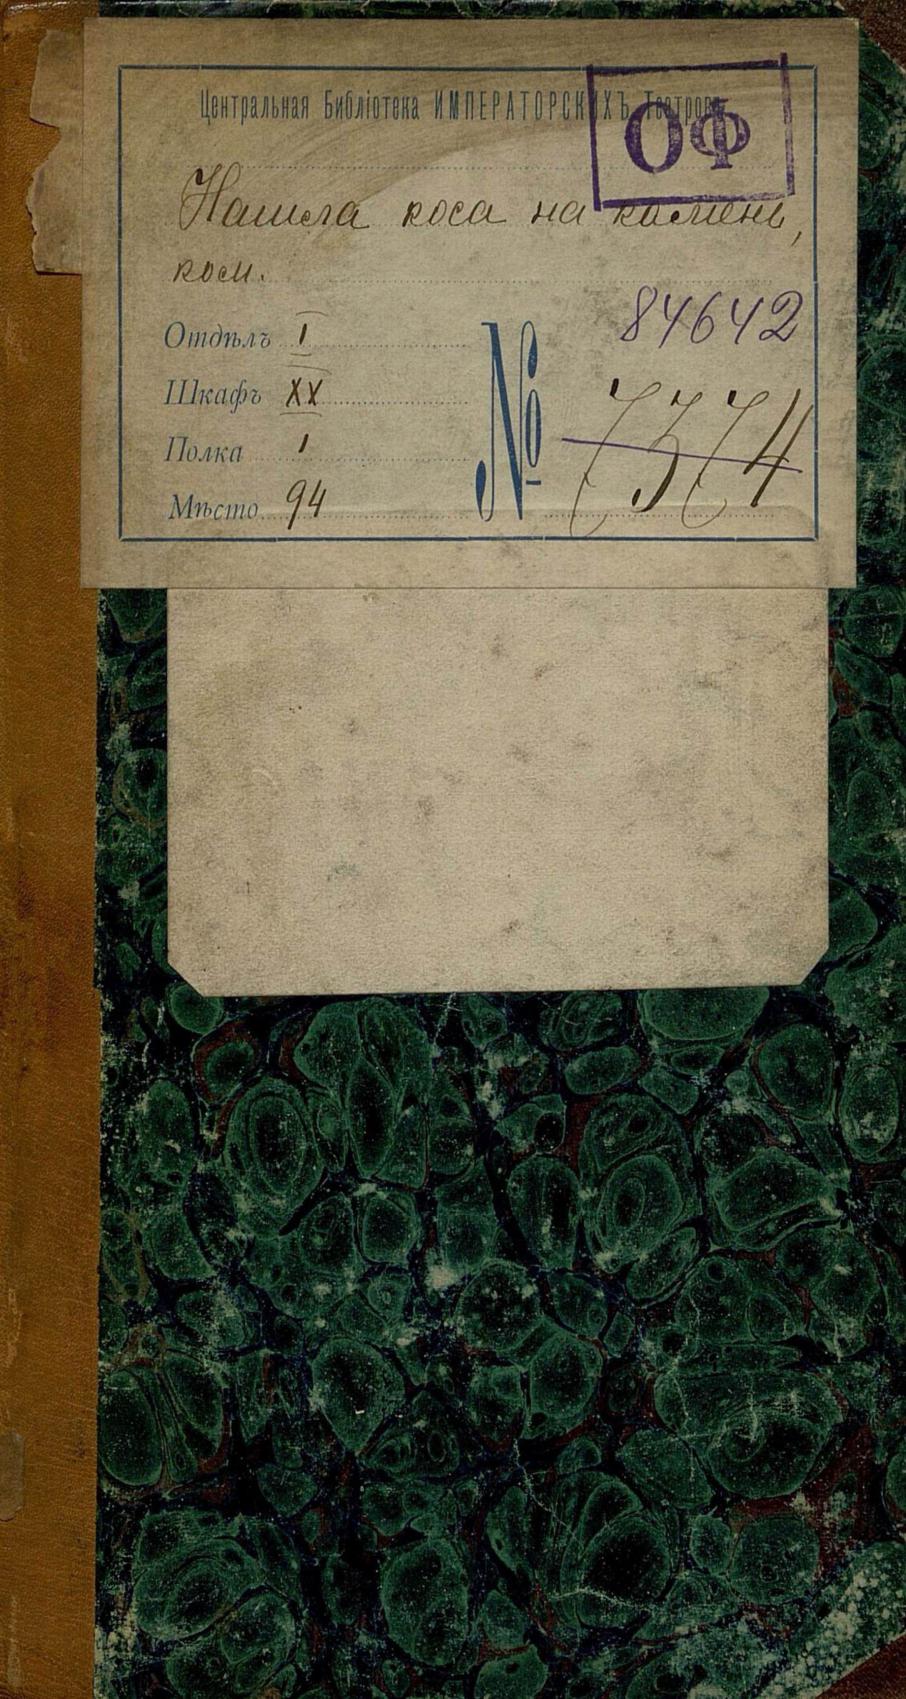 Центральная Библіотека ИМПЕРАТОРСКИХЪ Театровъ
ОФ
Нашла коса на камень,
ком.
84642
Отдѣлъ I
Шкафъ XX
Полка I
Мѣсто 94
№ 7374